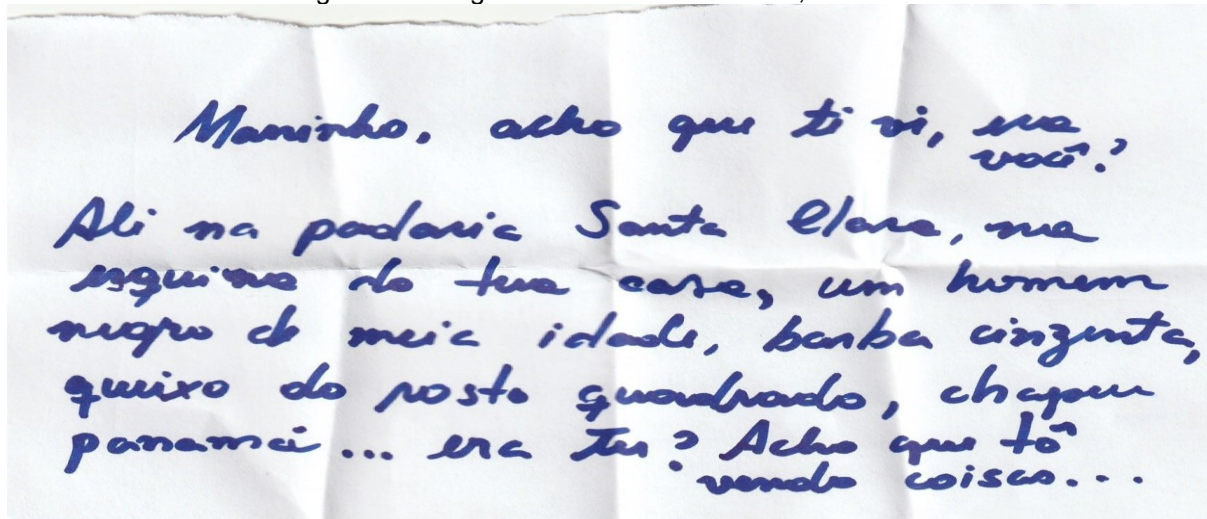 Maninho, acho que ti vi, era
você?
Ali na padaria Santa Clara, na
esquina da tua casa, um homem
negro de meia idade, barba cinzenta,
queixo do rosto quadrado, chapeu
panamá... era tu? Acho que tô
vendo coisas...